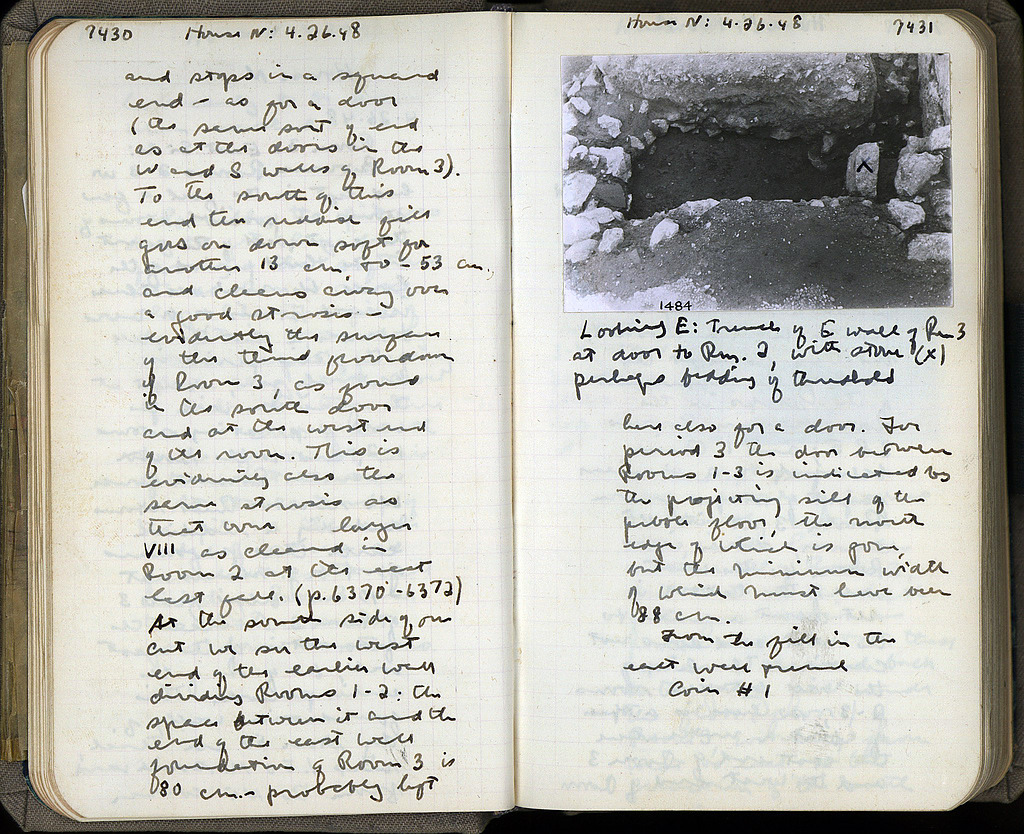 7430 House N: 4.26.48
and stops in a squared
end - as for a door
(the same sort of end
as at the doors in the
W and S walls of Room 3).
To the south of this
end the reddish fill
goes on down soft for
another 13 cm. to - 53 cm.,
and cleans away over
a good strosis -
evidently the surface
of the third period
of Room 3, as found
in the south door
and at the west end
of the room. This is
evidently also the
same strosis as
that over layer
VIII as cleaned in
Room 2 at the east
last fall. (p. 6370-6372)
At the south side of our
cut we see the west
end of the earlier wall
dividing Rooms 1-2: the
space between it and the
end of the east wall
foundation of Room 3 is
80 cm. - probably left
House N: 4.26.48 7431
X
1484
Looking E: Trench of E wall of Rm 3
at door to Rm. 2, with stone (x)
perhaps bedding of threshold
here also for a door. For
period 3 the door between
Rooms 1-3 is indicated by
the projecting sill of the
pebble floor, the north
edge of which is gone,
but the minimum width
of which must have been
88 cm.
From the fill in the
east wall trench
Coin #1